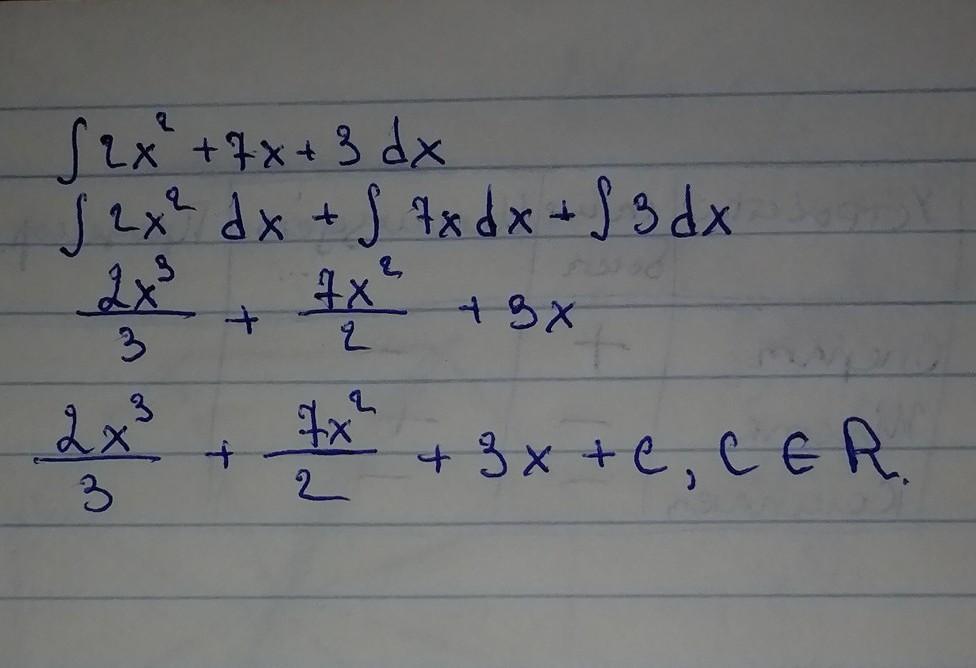 ∫ 2x² + 7x + 3 dx
∫ 2x² dx + ∫ 7x dx + ∫ 3 dx
2x³/3 + 7x²/2 + 3x
2x³/3 + 7x²/2 + 3x + C, C ∈ R.